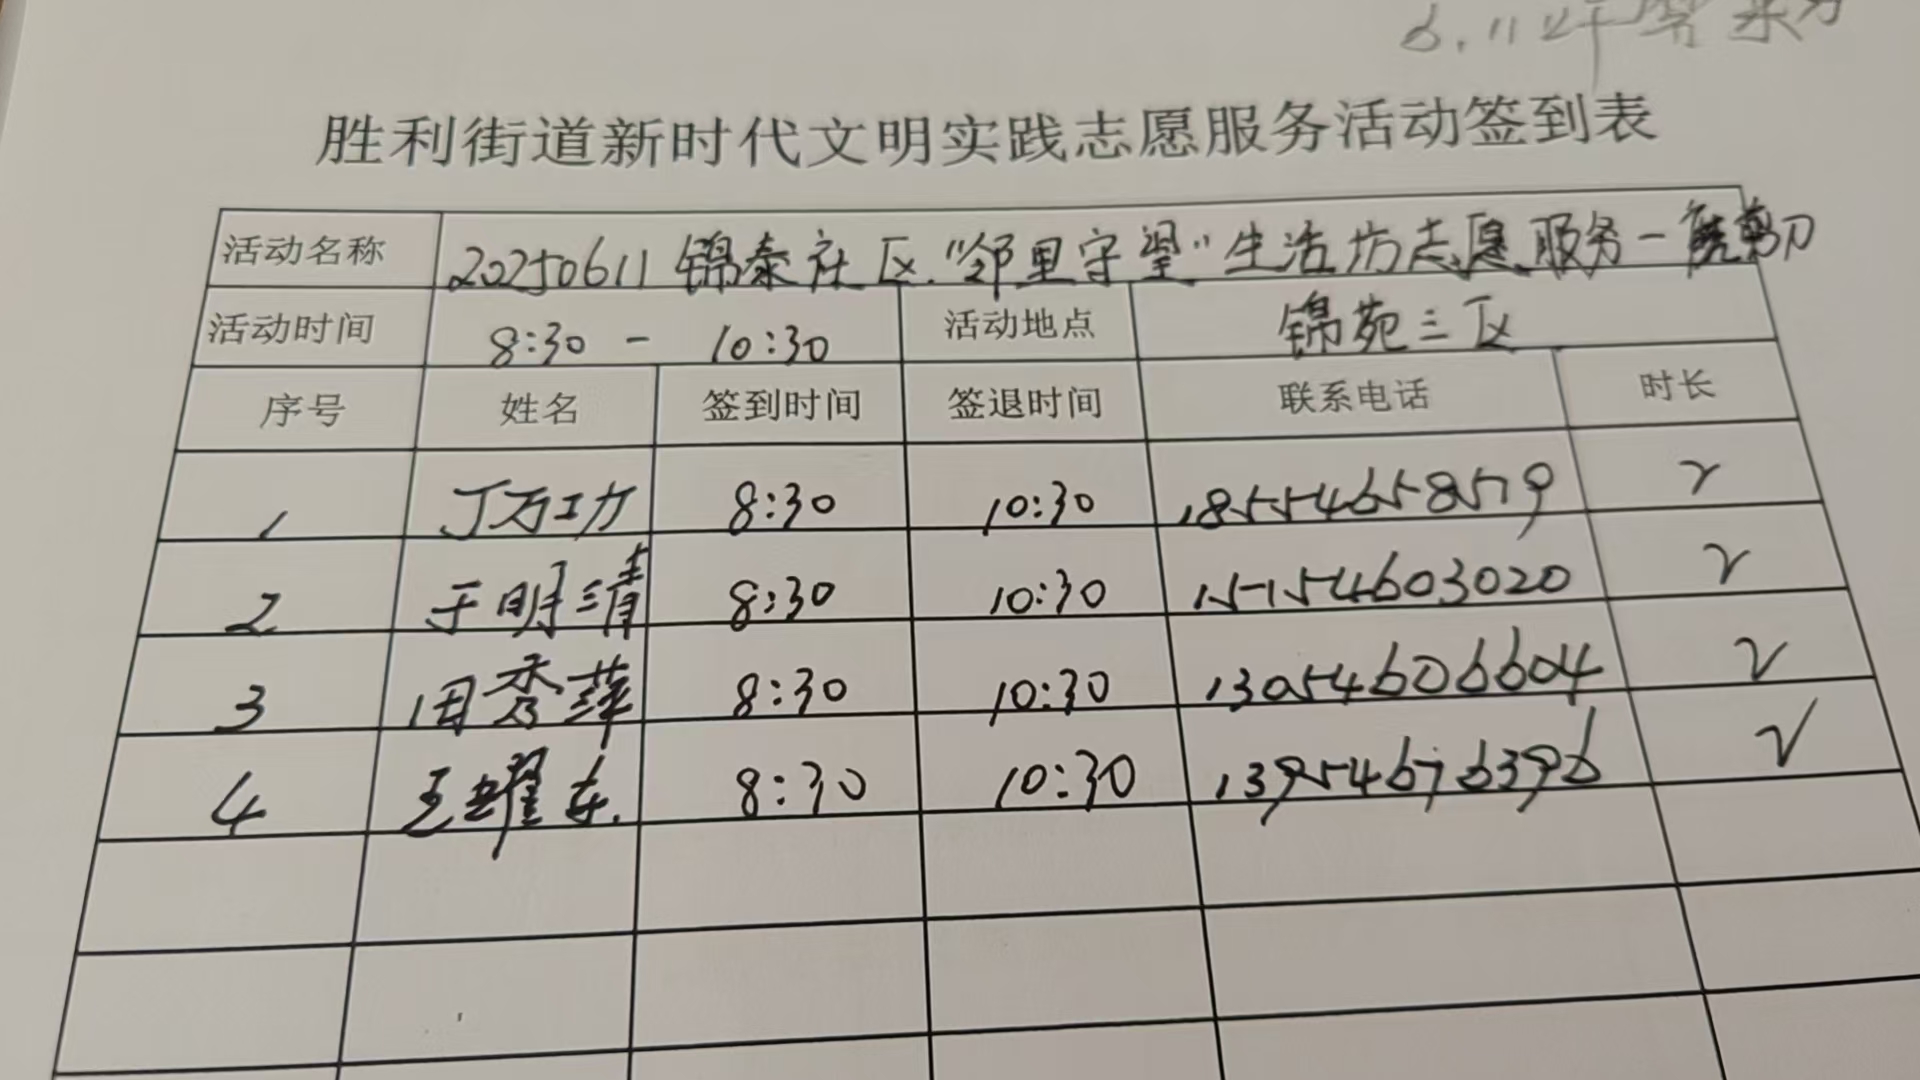 6.11
胜利街道新时代文明实践志愿服务活动签到表
活动名称 20250611锦泰社区"邻里守望"生活坊志愿服务一磨剪刀
活动时间 8:30 - 10:30 活动地点 锦苑三区
序号 姓名 签到时间 签退时间 联系电话 时长
1 丁万功 8:30 10:30 18554658579 2
2 于明清 8:30 10:30 15154603020 2
3 田秀萍 8:30 10:30 13054606604 2
4 王耀东 8:30 10:30 13954676396 2